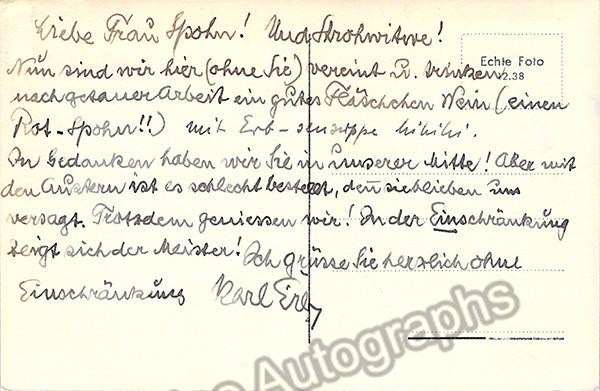 Liebe Frau Spohn! Und Strohwitwe!
Echte Foto
2.38
Nun sind wir hier (ohne Sie) vereint u. trinken
nach getaner Arbeit ein gutes Fläschchen Wein (einen
Rot-Spohn!!) mit Erb-sensuppe hihihi.
In Gedanken haben wir Sie in unserer Mitte! Aber mit
den Austern ist es schlecht bestellt, den̅ sie blieben uns
versagt. Trotzdem geniessen wir! In der Einschränkung
zeigt sich der Meister! Ich grüsse Sie herzlich ohne
Einschränkung Karl Erb
Autographs